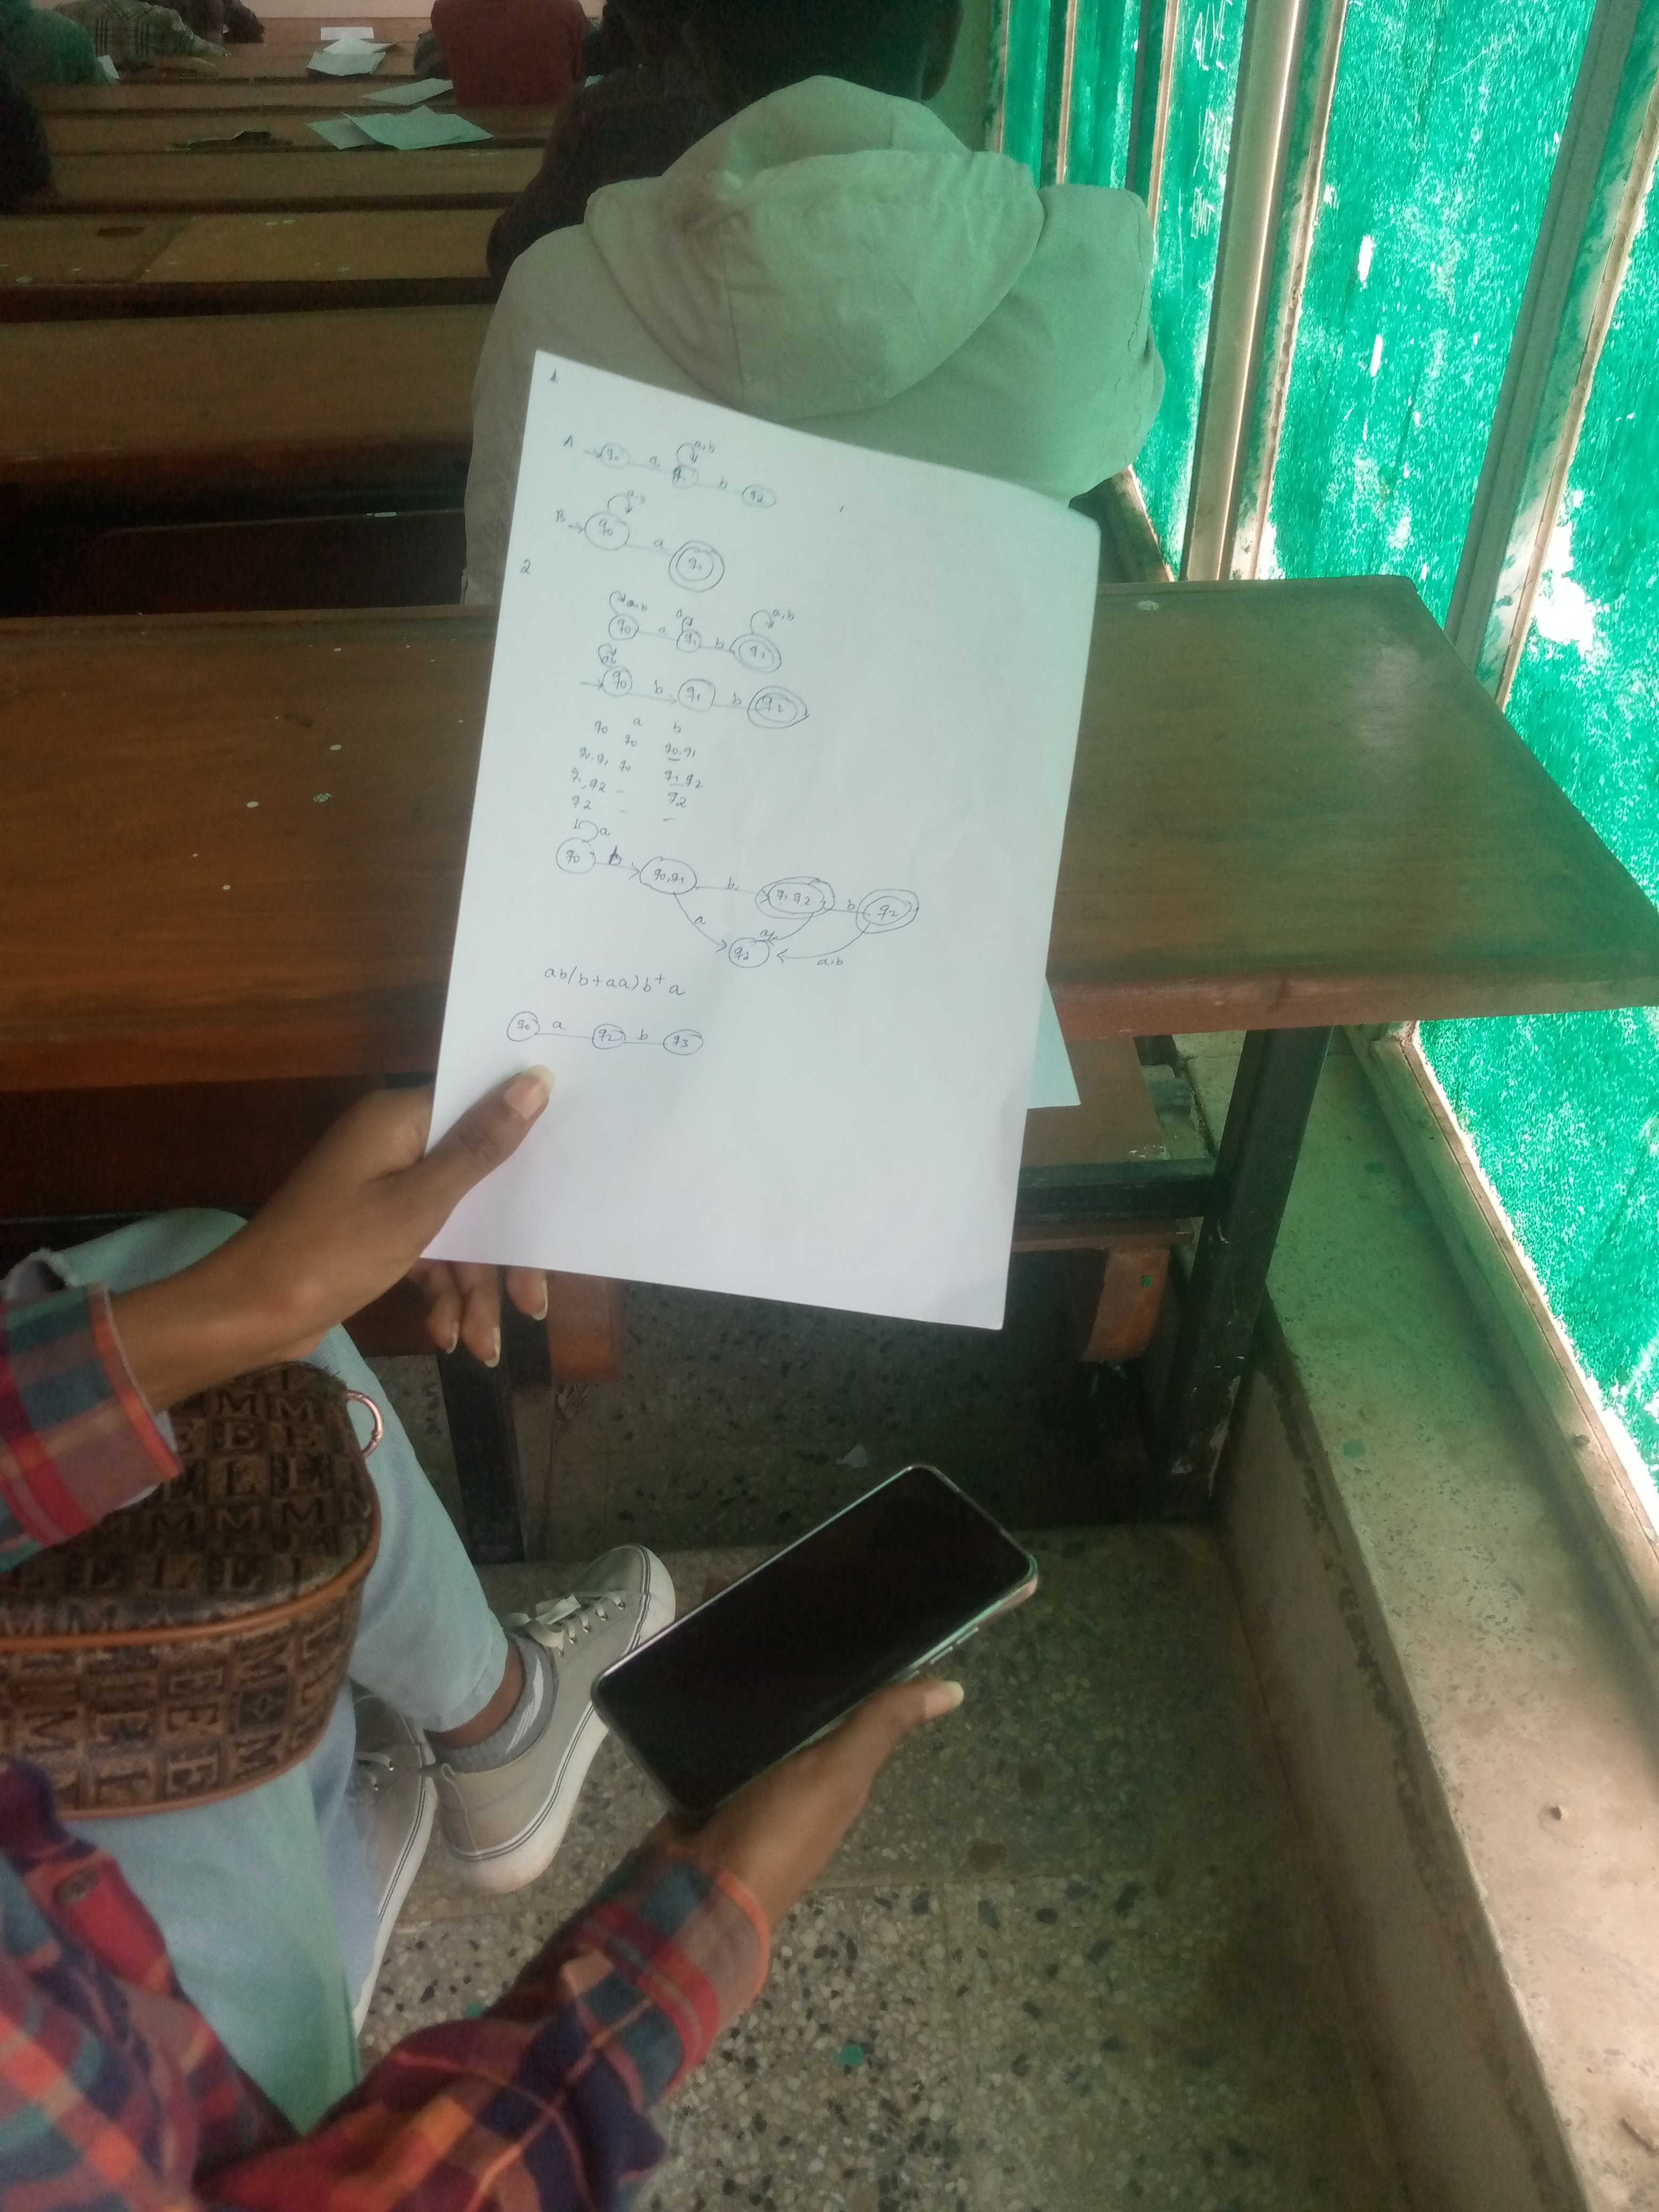 1
A q0 a q1 a,b b q2
B q0 a,b a q1
2
q0 a,b a q1 a b q2 a,b
q0 a b q1 b q2
a b
q0 q0 q0,q1
q0,q1 q0 q1,q2
q1,q2 - q2
q2 - -
a
q0 b q0,q1 b q1,q2 b q2
a a a,b
ab(b+aa)b+a
q0 a q2 b q3